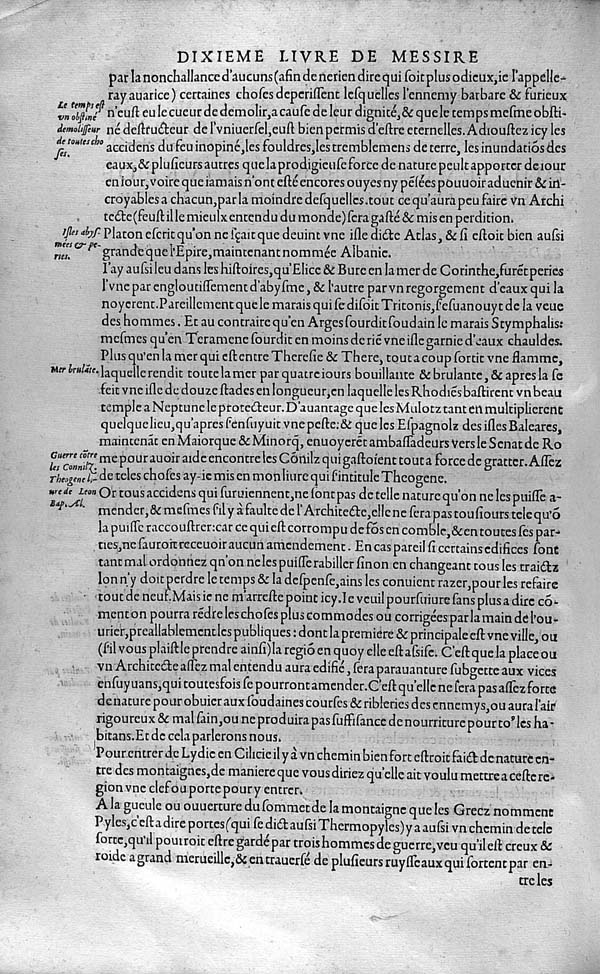 DIXIEME LIVRE DE MESSIRE
par la nonchallance d'aucuns (afin de ne rien dire qui soit plus odieux, ie l'appelle-
ray auarice) certaines choses deperissent lesquelles l'ennemy barbare & furieux
Le temps est
vn obstiné
demolisseur
de toutes cho
ses.
n'eust eu le cueur de demolir, a cause de leur dignité, & que le temps mesme obsti-
né destructeur de l'vniuersel, eust bien permis d'estre eternelles. Adioustez icy les
accidens du feu inopiné, les fouldres, les tremblemens de terre, les inundatiõs des
eaux, & plusieurs autres que la prodigieuse force de nature peult apporter de iour
en iour, voire que iamais n'ont esté encores ouyes ny pẽsées pouuoir aduenir & in-
croyables a chacun, par la moindre desquelles. tout ce qu'aura peu faire vn Archi
tecte (feust il le mieulx entendu du monde) sera gasté & mis en perdition.
Isles abys-
mées & pe-
ries.
Platon escrit qu'on ne sçait que deuint vne isle dicte Atlas, & si estoit bien aussi
grande que l'Epire, maintenant nommée Albanie.
I'ay aussi leu dans les histoires, qu'Elice & Bure en la mer de Corinthe, furẽt peries
l'vne par engloutissement d'abysme, & l'autre par vn regorgement d'eaux qui la
noyerent. Pareillement que le marais qui se disoit Tritonis, s'esuanouyt de la veue
des hommes. Et au contraire qu'en Arges sourdit soudain le marais Stymphalis:
mesmes qu'en Teramene sourdit en moins de riẽ vne isle garnie d'eaux chauldes.
Plus qu'en la mer qui est entre Theresie & There, tout a coup sortit vne flamme,
Mer brulãte.
laquelle rendit toute la mer par quatre iours bouillante & brulante, & apres la se
feit vne isle de douze stades en longueur, en laquelle les Rhodiẽs bastirent vn beau
temple a Neptune le protecteur. D'auantage que les Mulotz tant en multiplierent
quelque lieu, qu'apres s'ensuyuit vne peste: & que les Espagnolz des isles Baleares,
maintenãt en Maiorque & Minorq, enuoyerẽt ambassadeurs vers le Senat de Ro
Guerre cõtre
les Connilz.
Theogene li-
ure de Leon
Bap. Al.
me pour auoir aide encontre les Cõnilz qui gastoient tout a force de gratter. Assez
de teles choses ay-ie mis en mon liure qui s'intitule Theogene.
Or tous accidens qui suruiennent, ne sont pas de telle nature qu'on ne les puisse a-
mender, & mesmes s'il y à faulte de l'Architecte, elle ne sera pas tousiours tele qu'õ
la puisse raccoustrer: car ce qui est corrompu de fõs en comble, & en toutes ses par-
ties, ne sauroit receuoir aucun amendement. En cas pareil si certains edifices sont
tant mal ordonnez qu'on ne les puisse rabiller sinon en changeant tous les traictz
lon n'y doit perdre le temps & la despense, ains les conuient razer, pour les refaire
tout de neuf. Mais ie ne m'arreste point icy. Ie veuil poursuiure sans plus a dire cõ-
ment on pourra rẽdre les choses plus commodes ou corrigées par la main de l'ou-
urier, preallablement les publiques: dont la premiere & principale est vne ville, ou
(s'il vous plaist le prendre ainsi) la regiõ en quoy elle est assise. C'est que la place ou
vn Architecte assez mal entendu aura edifié, sera parauanture subgette aux vices
ensuyuans, qui toutesfois se pourront amender. C'est qu'elle ne sera pas assez forte
de nature pour obuier aux soudaines courses & ribleries des ennemys, ou aura l'air
rigoureux & mal sain, ou ne produira pas suffisance de nourriture pour toꝰ les ha-
bitans. Et de cela parlerons nous.
Pour entrer de Lydie en Cilicie il y à vn chemin bien fort estroit faict de nature en-
tre des montaignes, de maniere que vous diriez qu'elle ait voulu mettre a ceste re-
gion vne clef ou porte pour y entrer.
A la gueule ou ouuerture du sommet de la montaigne que les Grecz nomment
Pyles, c'est a dire portes (qui se dict aussi Thermopyles) y a aussi vn chemin de tele
sorte, qu'il pourroit estre gardé par trois hommes de guerre, veu qu'il est creux &
roide a grand merueille, & en trauersé de plusieurs ruysseaux qui sortent par en-
tre les